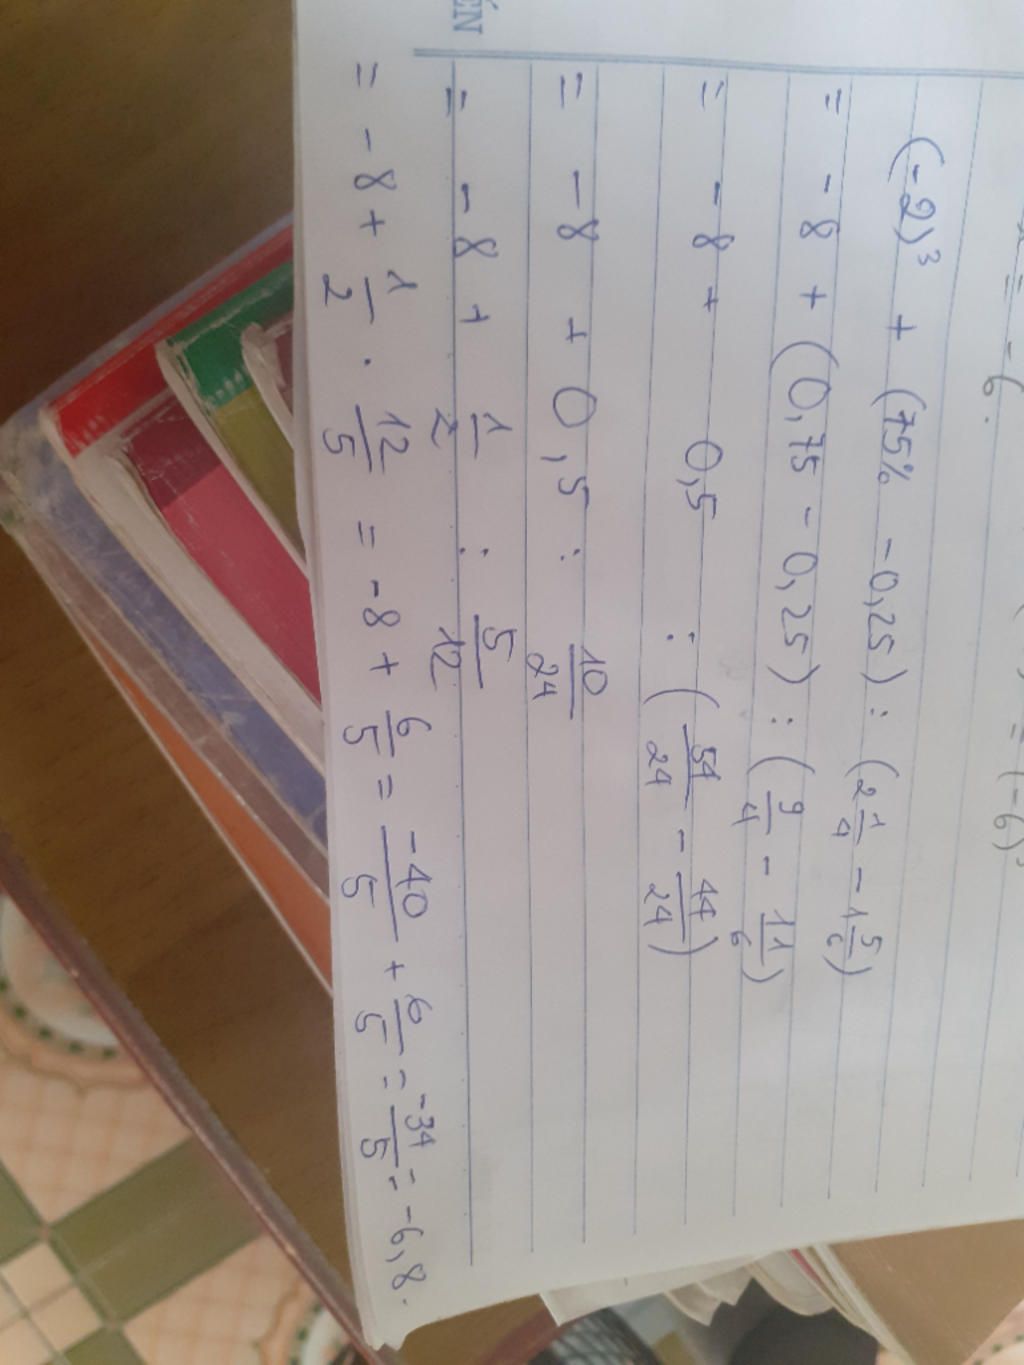 = -6.
= (-6)³
(-2)³ + (75% - 0,25) : (2 1/4 - 1 5/6)
= - 8 + (0,75 - 0,25) : (9/4 - 11/6)
= - 8 + 0,5 : (54/24 - 44/24)
= - 8 + 0,5 : 10/24
= - 8 + 1/2 : 5/12
= - 8 + 1/2 . 12/5 = -8 + 6/5 = -40/5 + 6/5 = -34/5 = -6,8.
ÉN